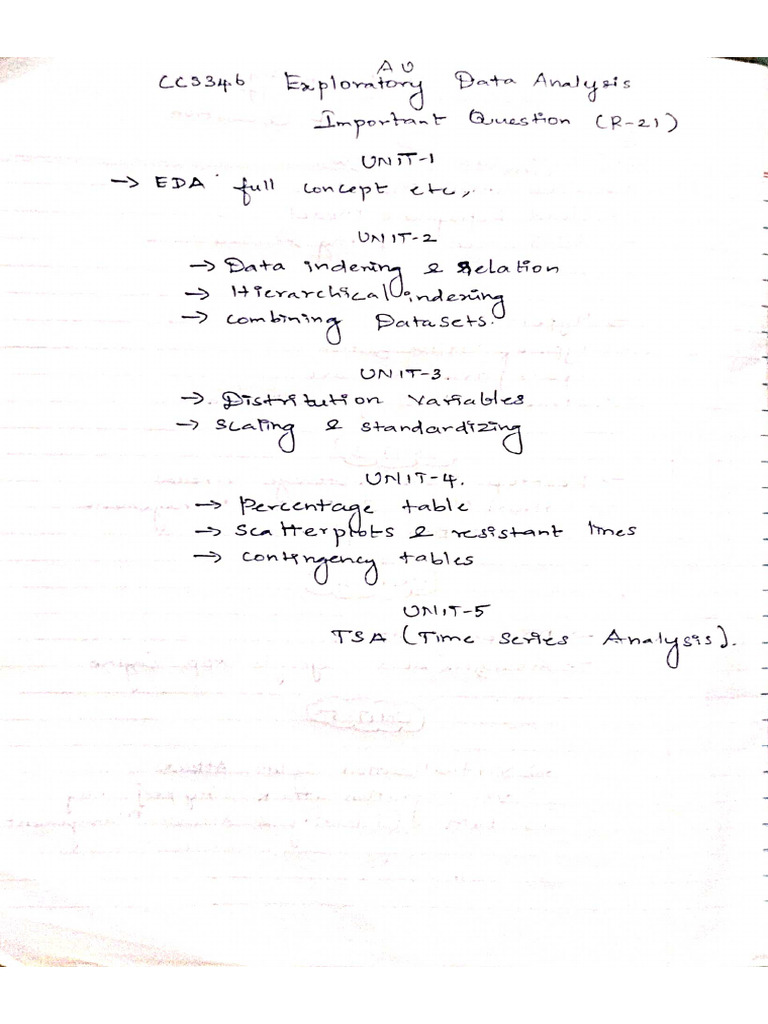 AU
CCS346 Exploratory Data Analysis
Important Question (R-21)
UNIT-1
→ EDA full concept etc,
UNIT-2
→ Data indexing & Selation
→ Hierarchical indexing
→ combining Datasets.
UNIT-3.
→ Distribution variables
→ scaling & standardizing
UNIT-4.
→ Percentage table
→ scatterplots & resistant lines
→ contingency tables
UNIT-5
TSA (Time series Analysis).